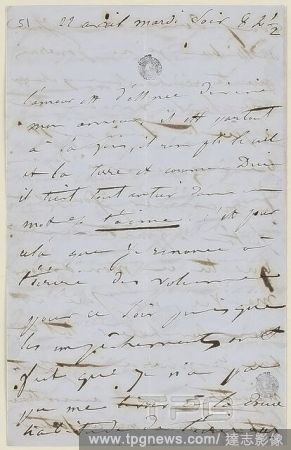 51 22 avril mardi soir 9 h ½
l'amour est d'essence divine
mon amour, il est partout
à la fois, il remplit le ciel
et la terre et comme Dieu
il tient tout entier dans un
mot : je t'aime. c'est par
cela que je renonce à
t'écrire des volumes
pour ce soir puisque
les empêchements ont
fait que je n'ai pas
pu me livrer à la douce
TPG
www.tpgnews.com / 達志影像